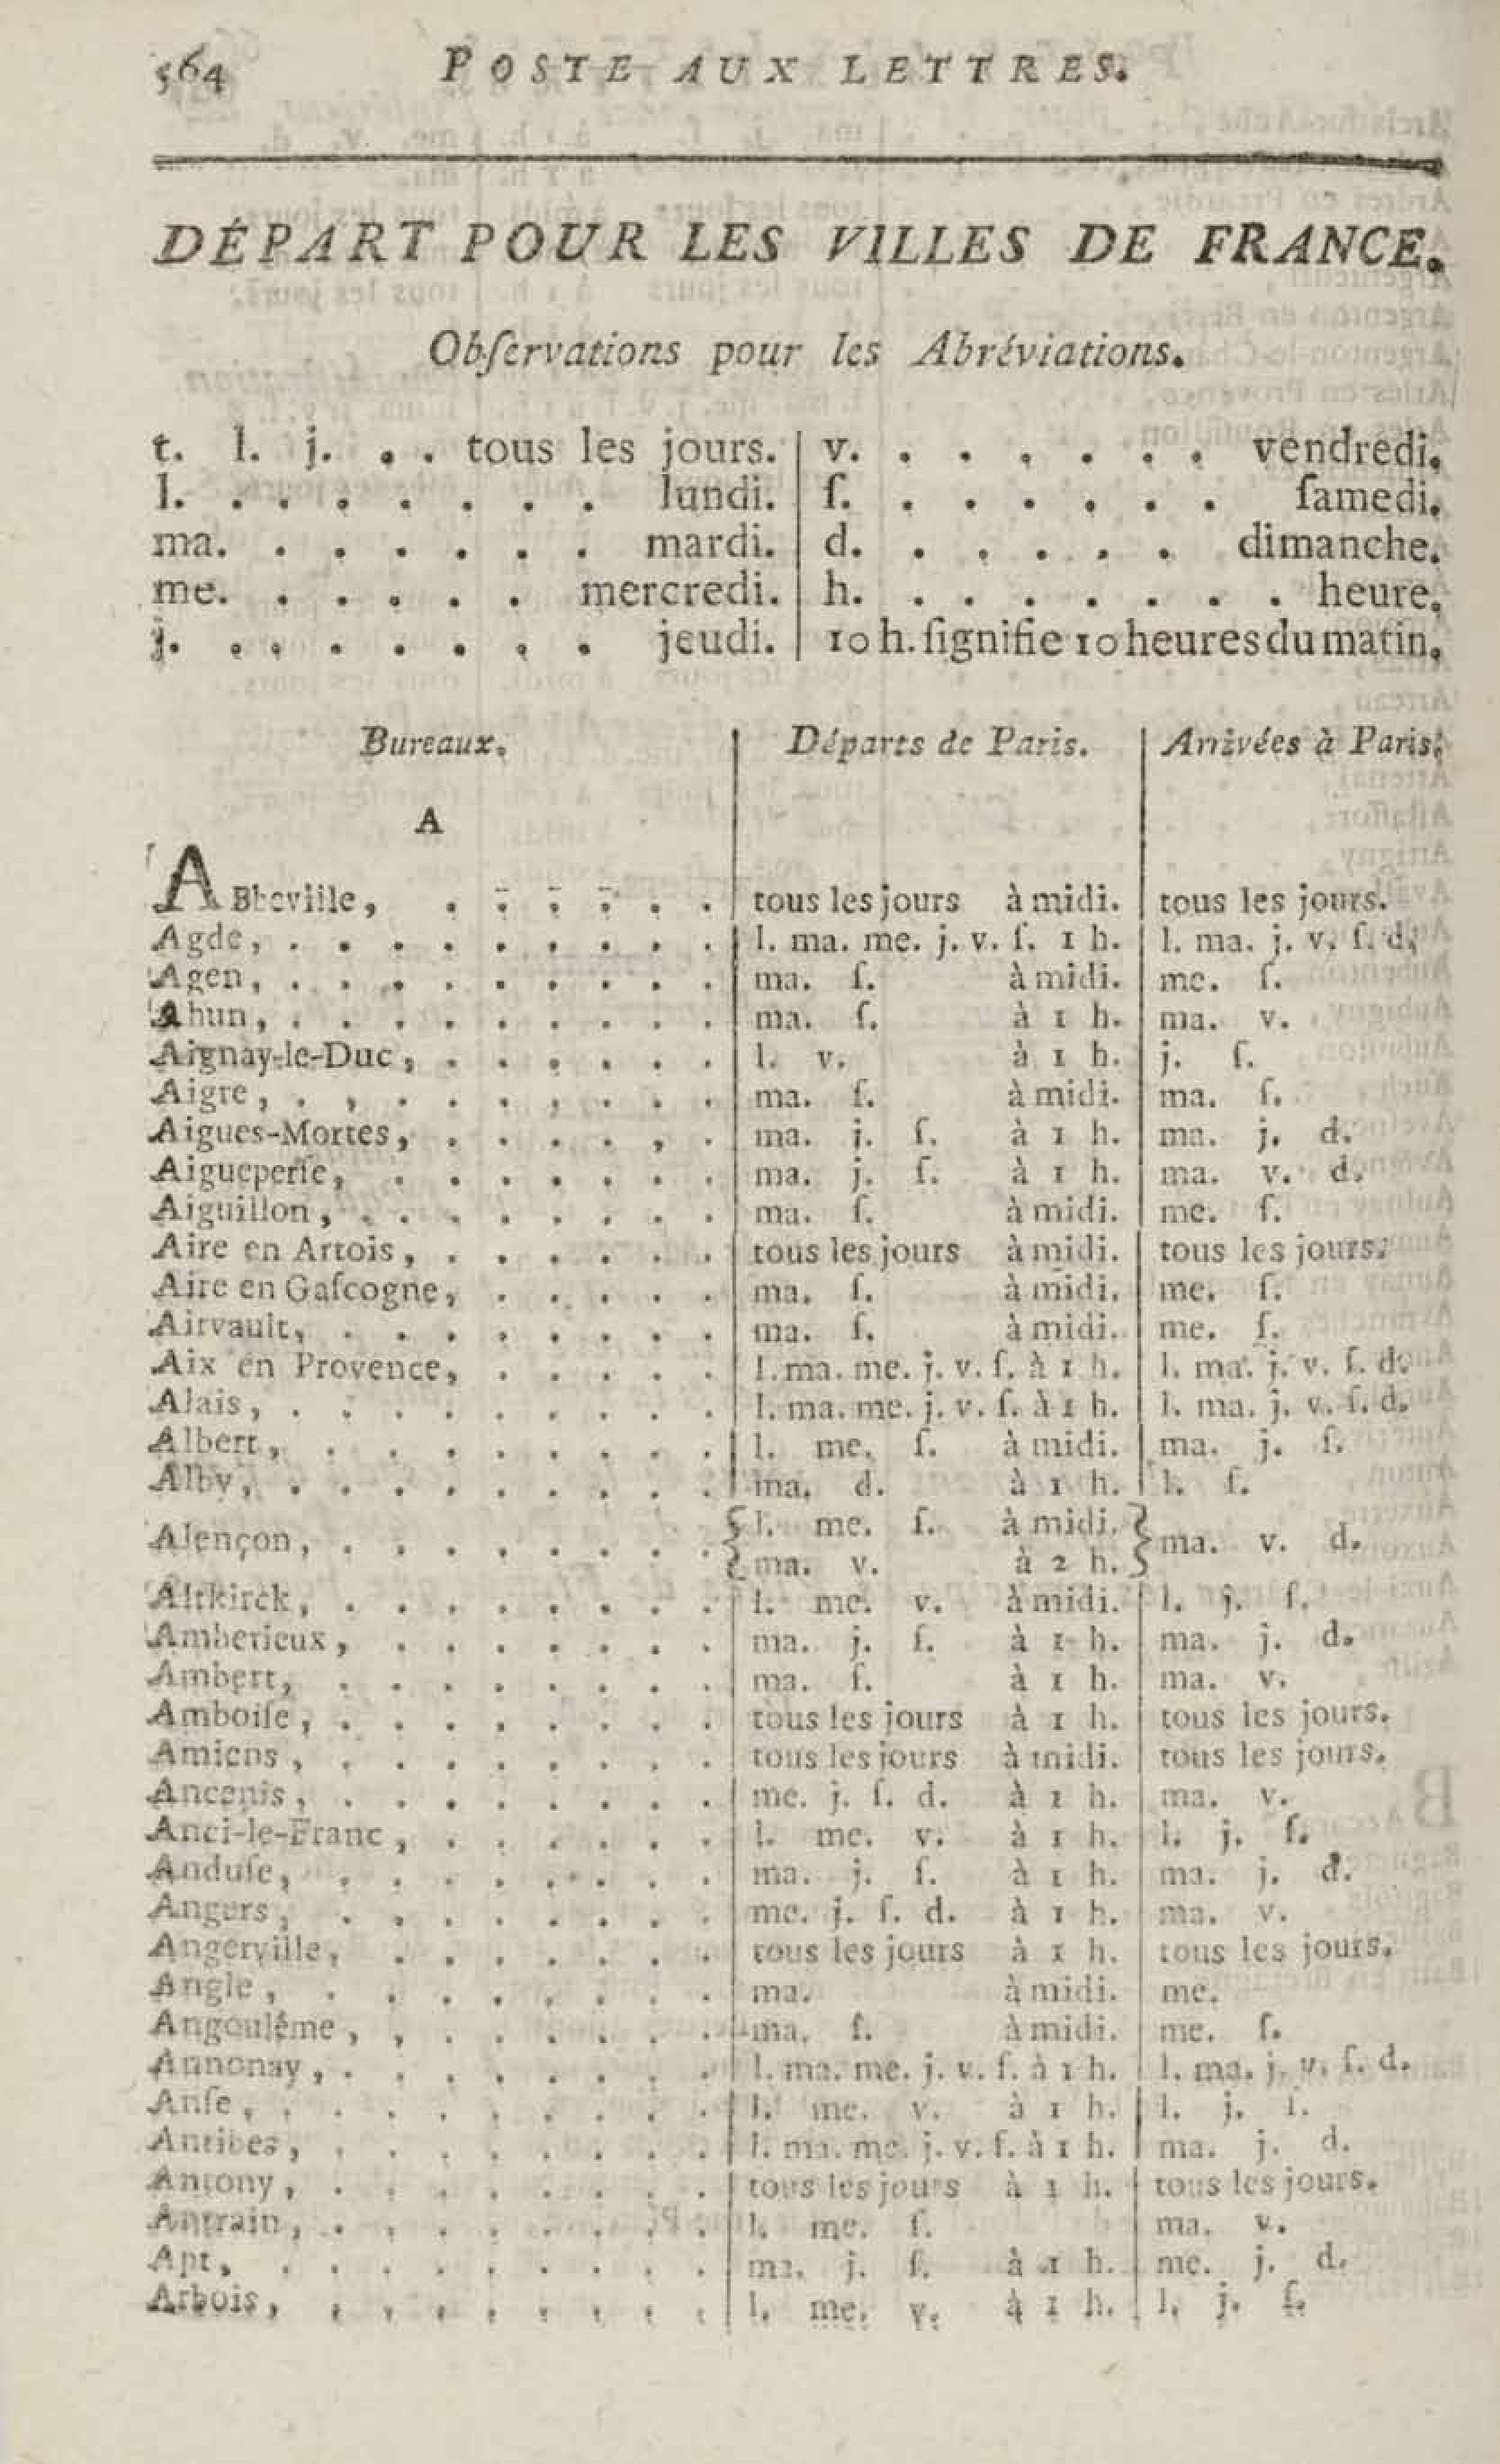 564 POSTE AUX LETTRES.
DÉPART POUR LES VILLES DE FRANCE.
Obſervations pour les Abréviations.
t. l. j. . . tous les jours. | v. . . . . . . . vendredi.
l. . . . . . . . lundi. | ſ. . . . . . . ſamedi.
ma. . . . . . . mardi. | d. . . . . . dimanche.
me. . . . . . mercredi. | h. . . . . . . . heure.
j. . . . . . . . jeudi. | 10 h. ſignifie 10 heures du matin.
Bureaux. | Départs de Paris. | Arrivées à Paris.
A
ABbeville, . . . . . . | tous les jours à midi. | tous les jours.
Agde, . . . . . . . . . | l. ma. me. j. v. ſ. 1 h. | l. ma. j. v. ſ. d.
Agen, . . . . . . . . . | ma. ſ. à midi. | me. ſ.
Ahun, . . . . . . . . . | ma. ſ. à 1 h. | ma. v.
Aignay-le-Duc, . . . . . . | l. v. à 1 h. | j. ſ.
Aigre, . . . . . . . . . | ma. ſ. à midi. | ma. ſ.
Aigues-Mortes, . . . . . . | ma. j. ſ. à 1 h. | ma. j. d.
Aigueperſe, . . . . . . . | ma. j. ſ. à 1 h. | ma. v. d.
Aiguillon, . . . . . . . . | ma. ſ. à midi. | me. ſ.
Aire en Artois, . . . . . . | tous les jours à midi. | tous les jours.
Aire en Gaſcogne, . . . . . | ma. ſ. à midi. | me. ſ.
Airvault, . . . . . . . . | ma. ſ. à midi. | me. ſ.
Aix en Provence, . . . . . | l. ma. me. j. v. ſ. à 1 h. | l. ma. j. v. ſ. d.
Alais, . . . . . . . . . | l. ma. me. j. v. ſ. à 1 h. | l. ma. j. v. ſ. d.
Albert, . . . . . . . . | l. me. ſ. à midi. | ma. j. ſ.
Alby, . . . . . . . . . | ma. d. à 1 h. | l. ſ.
{ l. me. ſ. à midi. }
Alençon, . . . . . . . . ma. v. d.
{ ma. v. à 2 h. }
Altkirck, . . . . . . . . | l. me. v. à midi. | l. j. ſ.
Amberieux, . . . . . . . | ma. j. ſ. à 1 h. | ma. j. d.
Ambert, . . . . . . . . | ma. ſ. à 1 h. | ma. v.
Amboiſe, . . . . . . . . | tous les jours à 1 h. | tous les jours.
Amiens, . . . . . . . . | tous les jours à midi. | tous les jours.
Ancenis, . . . . . . . . | me. j. ſ. d. à 1 h. | ma. v.
Anci-le-Franc, . . . . . . | l. me. v. à 1 h. | l. j. ſ.
Anduſe, . . . . . . . . | ma. j. ſ. à 1 h. | ma. j. d.
Angers, . . . . . . . . | me. j. ſ. d. à 1 h. | ma. v.
Angerville, . . . . . . . | tous les jours à 1 h. | tous les jours.
Angle, . . . . . . . . | ma. à midi. | me.
Angoulême, . . . . . . . | ma. ſ. à midi. | me. ſ.
Annonay, . . . . . . . . | l. ma. me. j. v. ſ. à 1 h. | l. ma. j. v. ſ. d.
Anſe, . . . . . . . . . | l. me. v. à 1 h. | l. j. ſ.
Antibes, . . . . . . . . | l. ma. me. j. v. ſ. à 1 h. | ma. j. d.
Antony, . . . . . . . . | tous les jours à 1 h. | tous les jours.
Antrain, . . . . . . . . | l. me. ſ. | ma. v.
Apt, . . . . . . . . . | ma. j. ſ. à 1 h. | me. j. d.
Arbois, . . . . . . . . | l. me. v. à 1 h. | l. j. ſ.